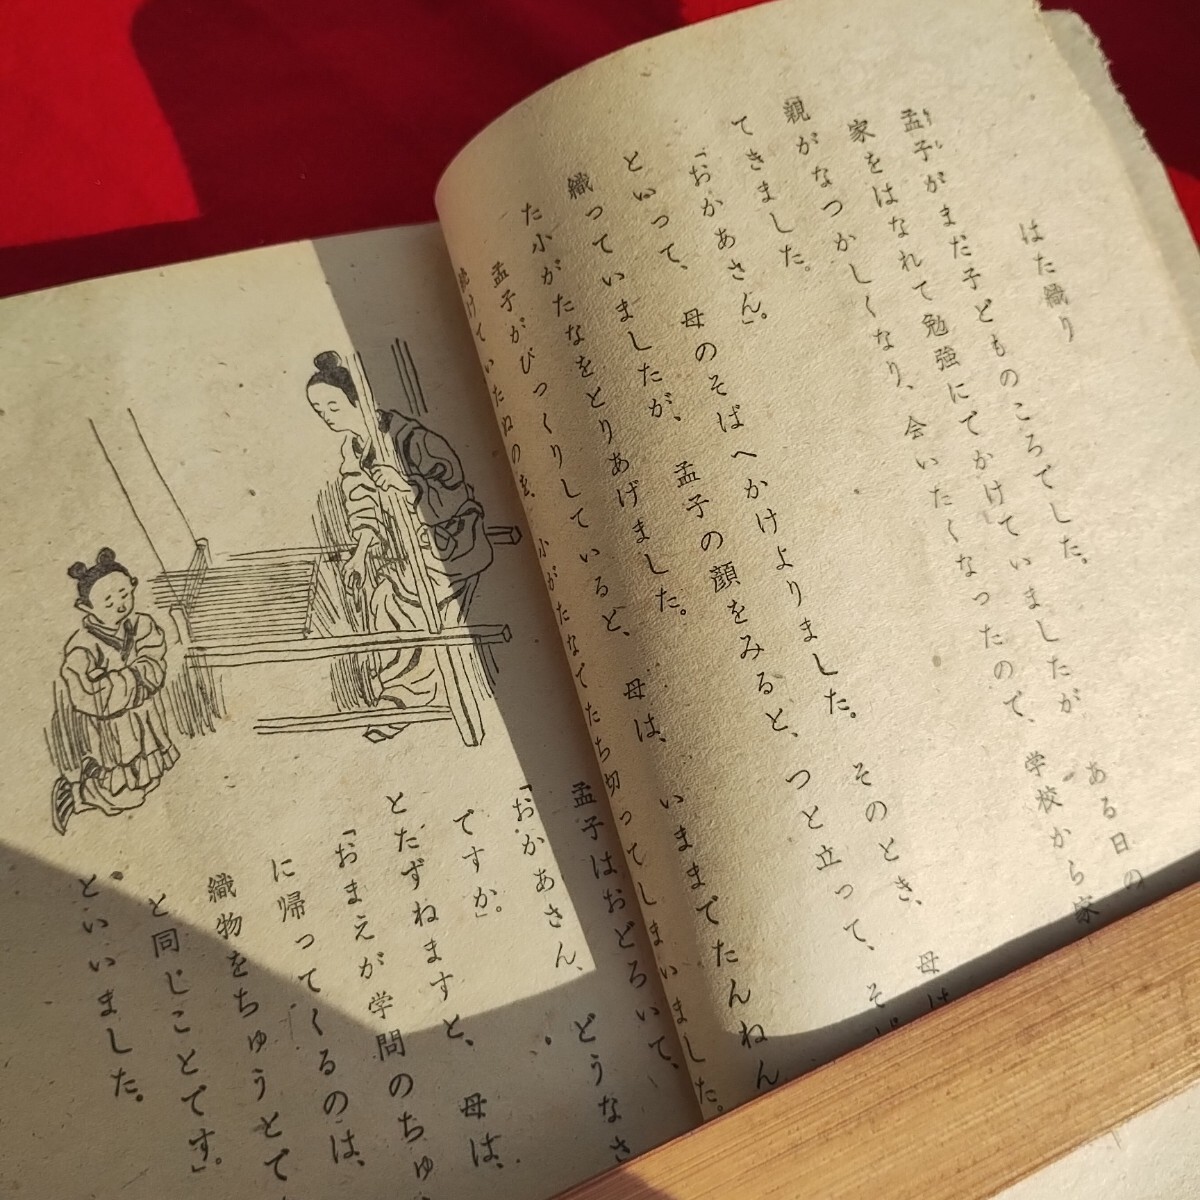 はた織り
孟子がまだ子どものころでした。 ある日の
家をはなれて勉強にでかけていましたが
親がなつかしくなり、会いたくなったので、学校から家
てきました。
「おかあさん。」
といって、母のそばへかけよりました。そのとき、母は
織っていましたが、孟子の顔をみると、つと立って、そば
た小がたなをとりあげました。
孟子がびっくりしていると、母は、いままでたんねん
続けていたぬのを、小がたなでたち切ってしまいました。
孟子はおどろいて、
「おかあさん、どうなさ
ですか。」
とたずねますと、母は、
「おまえが学問のちゅ
に帰ってくるのは、
織物をちゅうとで
と同じことです。」
といいました。